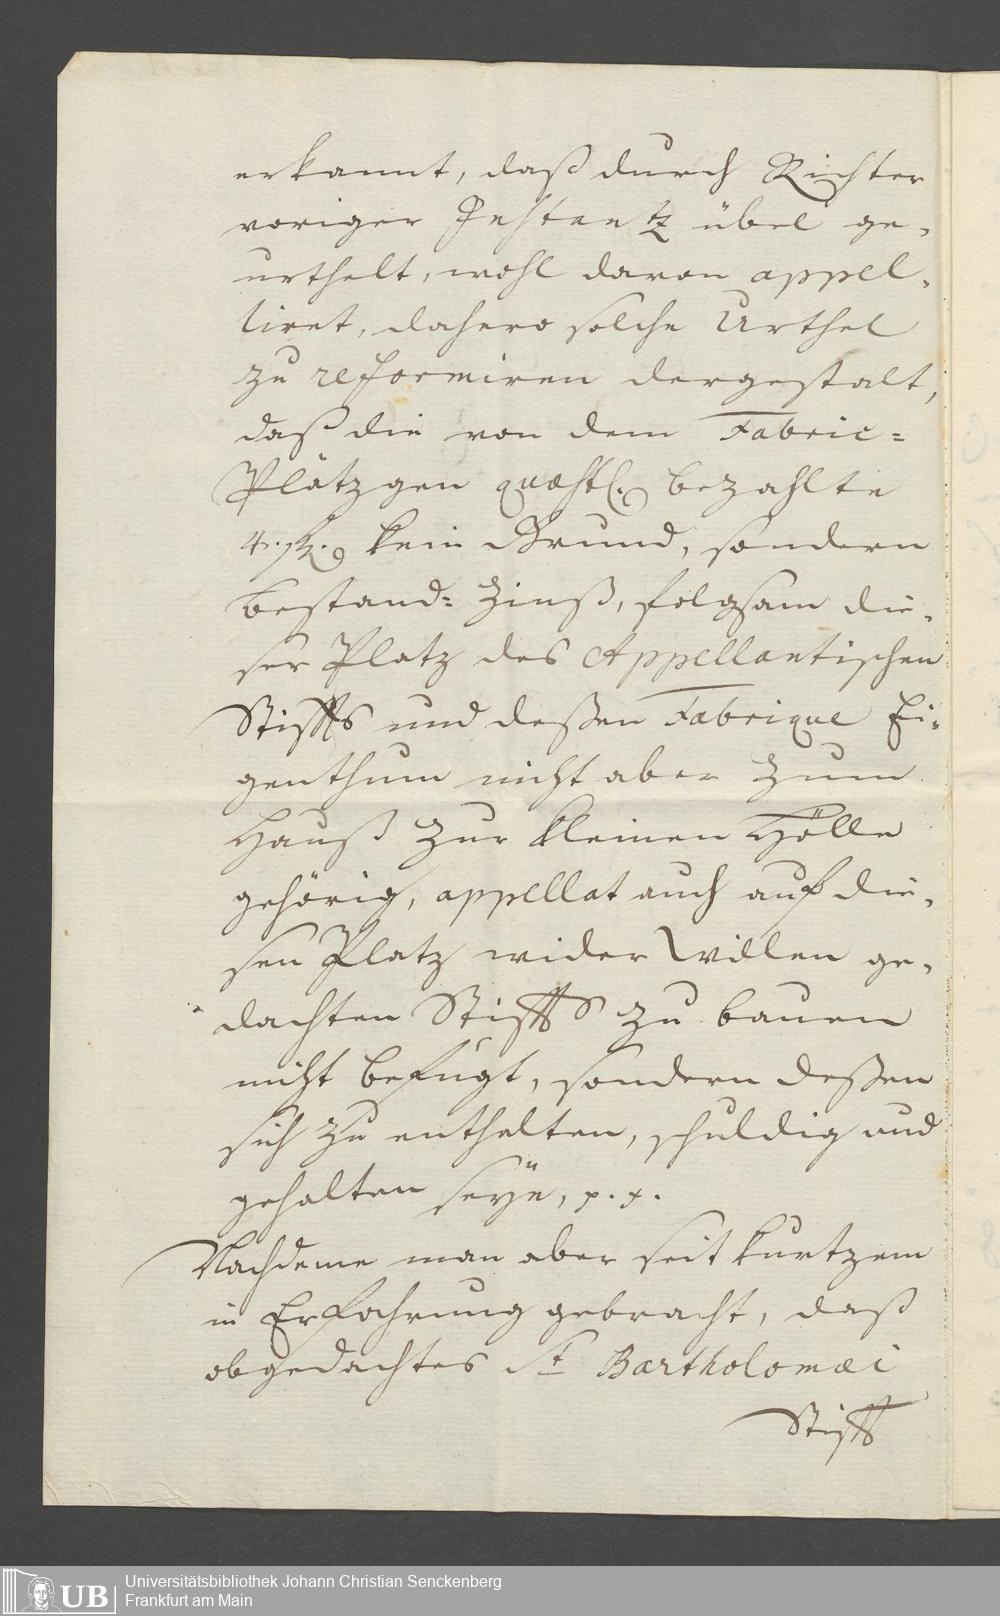 erkannt, daß durch Richter
voriger Instantz übel ge-
urthelt, wohl davon appel-
liret, dahero solche Urthel
zu reformiren dergestalt,
daß die von dem Fabric=
Plätzgen quæstl. bezahlte
4. ß. kein Grund, sondern
bestand= Zinß, folgsam die-
ser Platz des Appellantischen
Stiffts und deßen Fabrique Ei-
genthum nicht aber zum
Hauß zur kleinen Hölle
gehörig, appellat auch auf die-
sen Platz wider Willen ge-
dachten Stiffts zu bauen
nicht befugt, sondern deßen
sich zu enthalten, schuldig und
gehalten seÿe, p. p.
Nachdeme man aber seit kurtzem
in Erfahrung gebracht, daß
obgedachtes St Bartholomæi
Stifft
UB
Universitätsbibliothek Johann Christian Senckenberg
Frankfurt am Main